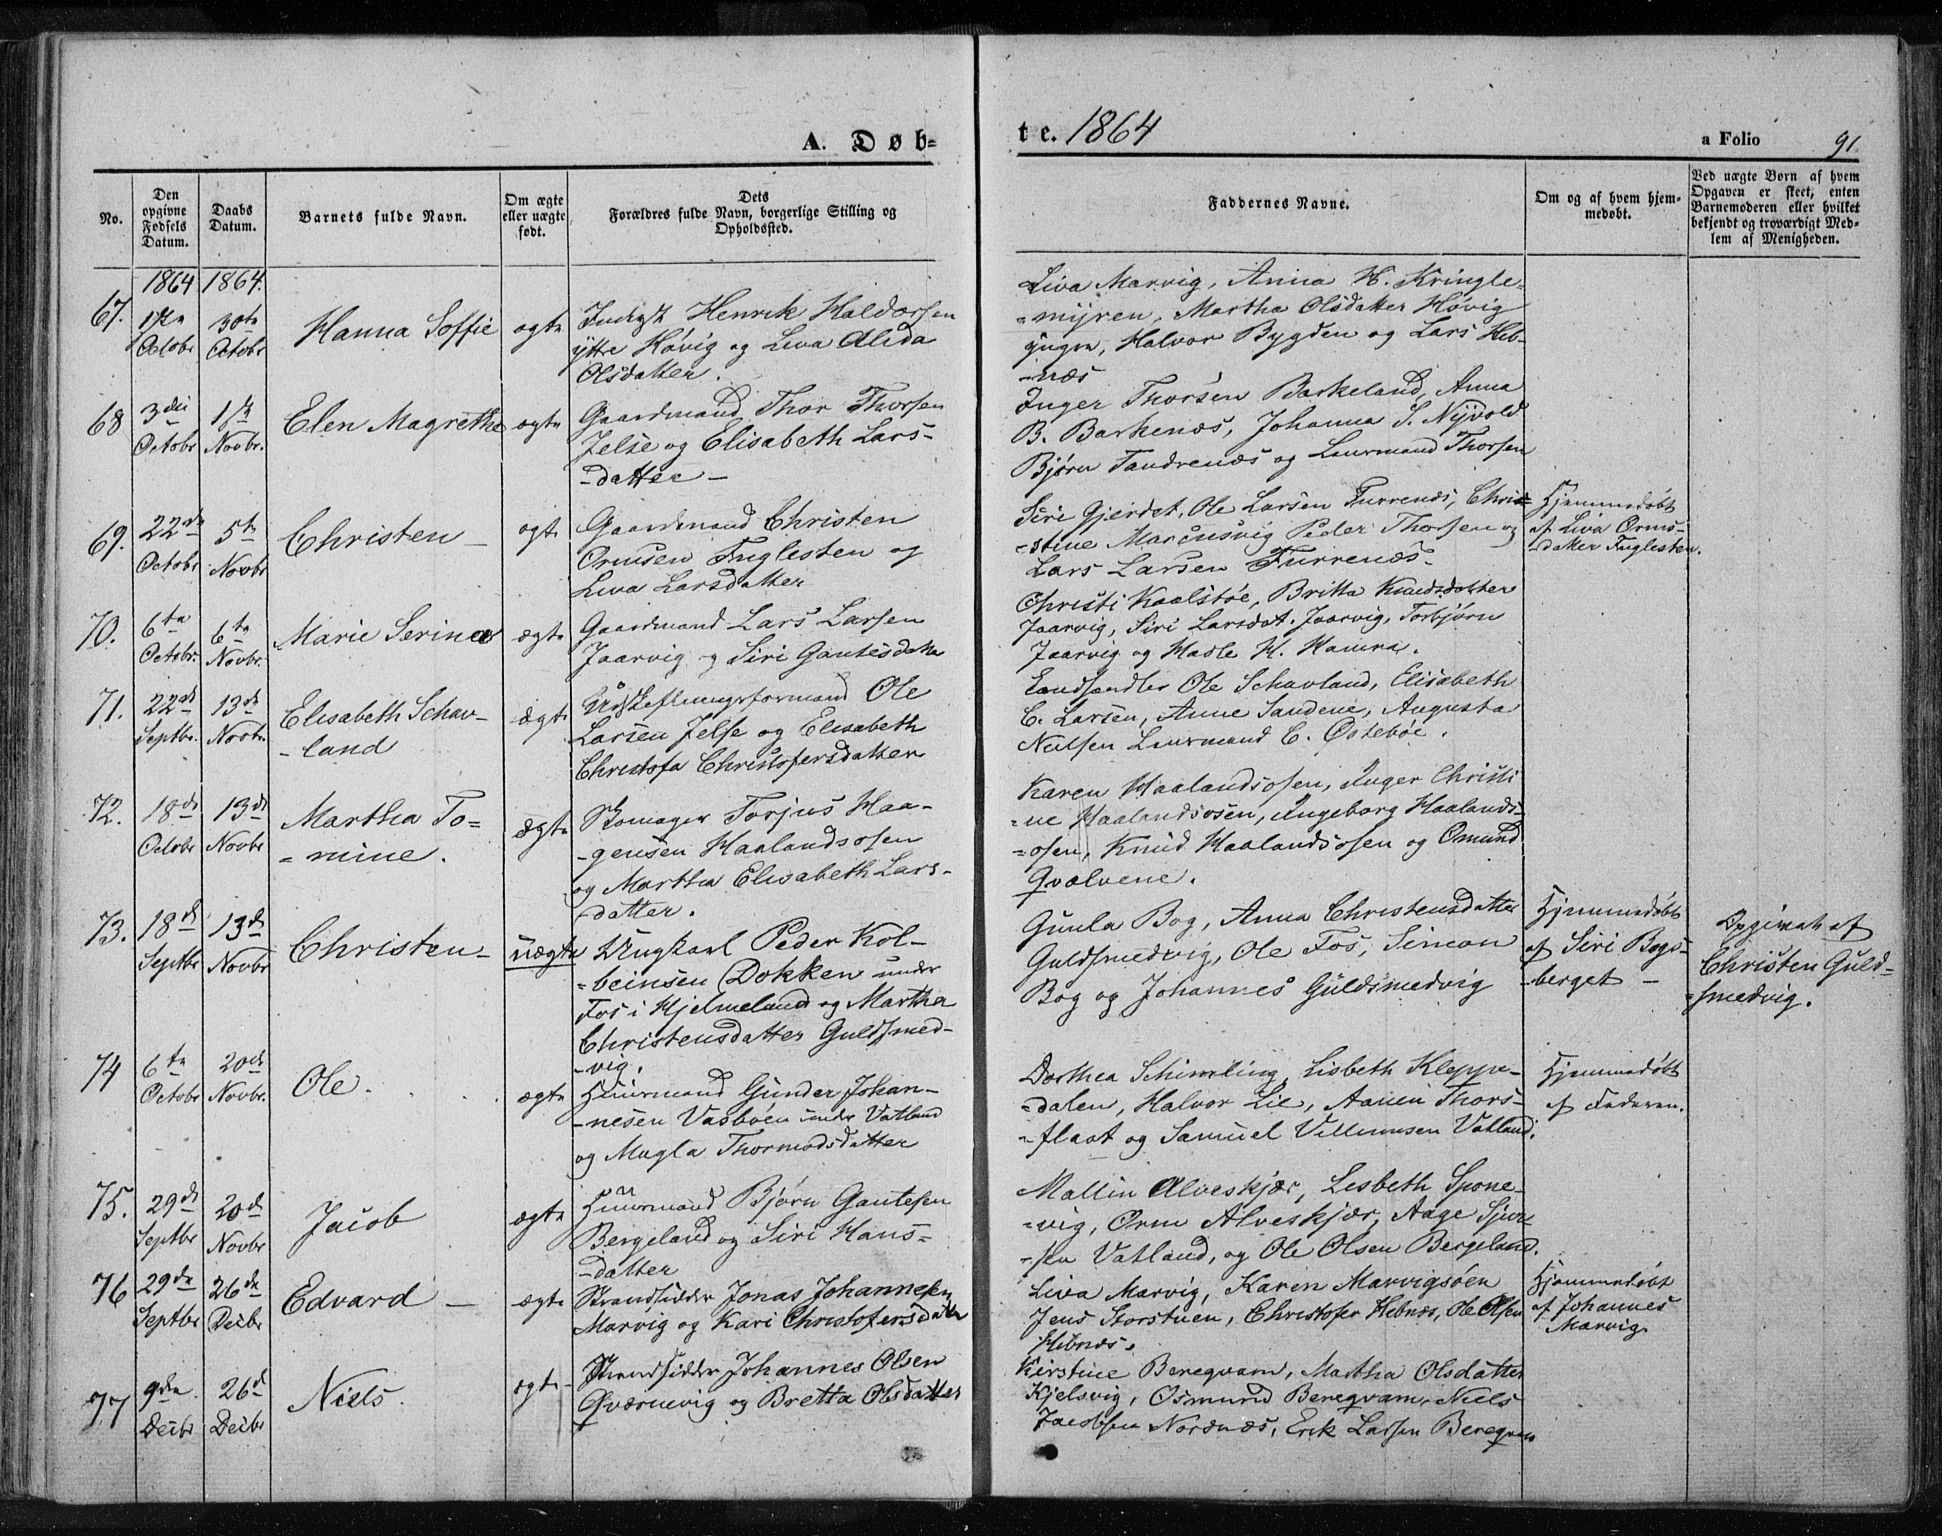 A. Døb-
te. 1864
a Folio 91.
No.
Den opgivne Fødsels Datum.
Daabs Datum.
Barnets fulde Navn.
Om ægte eller uægte født.
Dets
Forældres fulde Navn, borgerlige Stilling og
Opholdssted.
Faddernes Navne.
Om og af hvem hjem-
medøbt.
Ved uægte Børn af hvem
Opgaven er skeet, enten
Barnemoderen eller hvilket
bekjendt og troværdigt Med-
lem af Menigheden.
1864 1864.
67.
October
30te
Octobr
Hanna Soffie
ægte
Henrik Haldorsen
ytre Høvig og Liva Alida
Olsdatter.
Liva Marvig, Anna H. Kringle-
=myren, Martha Olsdatter Høvig
Halvor Bygden og Lars Heb-
-næs
68
3die
Octobr
1ste
Novbr.
Elen Magrethe
ægte
Gaardmand Thor Thorsen
Jelse og Elisabeth Lars-
-datter -
Inger Thorsen Barkeland, Anna
B. Barkenæs, Johanna S. Nyvold
Bjørn Tandrenæs og Thorsen
69.
22de
Octobr
5te
Novbr
Christen -
ægte
Gaardmand Christen
Ormsen Fuglesten og
Liva Larsdatter
Siri Gjerdet, Ole Larsen Furrenæs, Chri-
-stine Marcusvig Peder Thorsen og
Lars Larsen Furrenæs.
Hjemmedøbt
af Liva Orms-
-datter Fuglesten.
70.
6te
Octobr.
6te
Novbr.
Marie Serine
ægte
Gaardmand Lars Larsen
Jaarvig og Siri Gautesdatter
Christi Kaalstøe, Britta Knudsdatter
Jaarvig, Siri Larsdat. Jaarvig, Torbjørn
Jaarvig og H. Hamra.
71.
22de
Septbr.
13de
Novbr.
Elisabeth Schav-
-land
ægte
Udskiftningsformand Ole
Larsen Jelse og Elisabeth
Christofa Christofersdatter
Landhandler Ole Schavland, Elisabeth
C. Larsen, Anne Sandene, Augusta
Nielsen E. Østebøe.
72.
18de
Octobr
13de
Novbr
Martha To-
-mine.
ægte
Skomager Torjus Haa-
-gensen Haalandsosen
og Martha Elisabeth Lars-
-datter.
Karen Haalandsosen, Inger Christi
-ne Haalandsosen, Ingeborg Haalands-
=osen, Knud Haalandsosen og Omund
Qvælvene.
73.
18de
Septbr
13de
Novbr
Christen -
uægte
Ungkarl Peder Kol-
-beinsen Dokken under
Fos i Hjelmeland og Martha
Christensdatter Guldsmed-
-vig.
Gunla Bog, Anna Christensdatter
Guldsmedvig, Ole Fos, Simon
Bog og Johannes Guldsmedvig
Hjemmedøbt
af Siri Bogs-
-berget -
Opgivet af
Christen Guld-
=smedvig.
74
6te
Octobr
20de
Novbr.
Ole.
ægte
Huusmand Gunder Johan-
-nesen Vasbøen under Vatland
og Magla Thormodsdatter
Dorthea Schimling, Lisbeth Kleppe-
-dalen, Halvor Lie, Aanen Thors-
-flaat og Samuel Villumsen Vatland.
Hjemmedøbt
af Faderen.
75.
29de
Septbr
20de
Novbr
Jacob
ægte
Huusmand Bjørn Gautesen
Bergeland og Siri Hans-
-datter
Mallin Alveskjær, Lisbeth Spone-
-vig, Orm Alveskjær, Aage
Vatland, og Ole Olsen Bergeland.
76
29de
Septbr
26de
Decbr
Edvard -
ægte
Strandsidder Jonas Johannesen
Marvig og Kari Christofersdatter
Liva Marvig, Karen Marvigsøen
Jens Storstuen, Christofer Hebnæs, Ole Olsen
Hebnæs.
Hjemmedøbt
af Johannes
Marvig
77
9de
Decbr
26d
Decbr
Niels.
ægte
Strandsidder Johannes Olsen
Qværnevig og Bretta Olsdatter
Kirstine Bereqvam, Martha Olsdatter
Kjelsvig, Osmund Bereqvam, Niels
Jacobsen Nordnæs, Erik Larsen Bereqvam